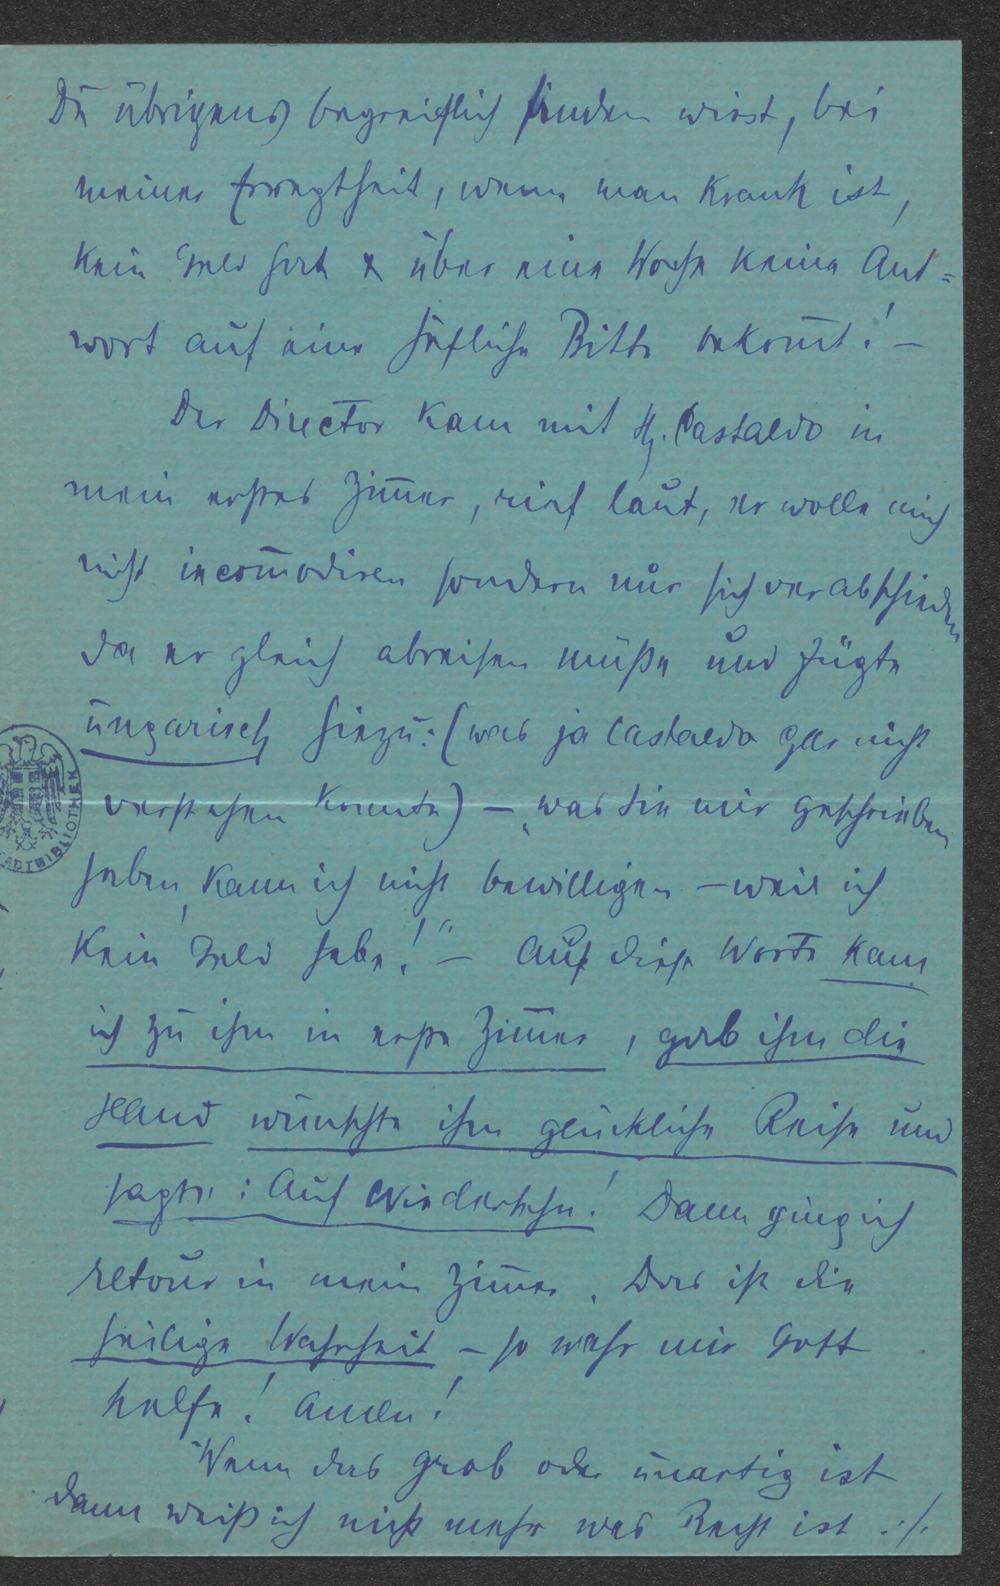 Du übrigens begreiflich finden wirst, bei
meiner Erregtheit, wenn man krank ist,
kein Geld hat & über eine Woche keine Ant=
wort auf eine höfliche Bitte bekom̄t! –
Der Director kam mit H. Castaldo in
mein erstes Zim̄er, rief laut, er wolle mich
nicht incom̄odiren sondern nur sich verabschieden
da er gleich abreisen müße und fügte
ungarisch hinzu: (was ja Castaldo gar nicht
verstehen konnte) – „was Sie mir geschrieben
haben, kann ich nicht bewilligen – weil ich
kein Geld habe!" – Auf diese Worte kam
ich zu ihm in erste Zim̄er, gab ihm die
Hand wünschte ihm glückliche Reise und
sagte: Auf Wiedersehn! Dann ging ich
retour in mein Zim̄er. Das ist die
heilige Wahrheit – so wahr mir Gott
helfe! Amen!
Wenn das grob oder unartig ist
dann weiß ich nicht mehr was Recht ist ./.
STADTBIBLIOTHEK